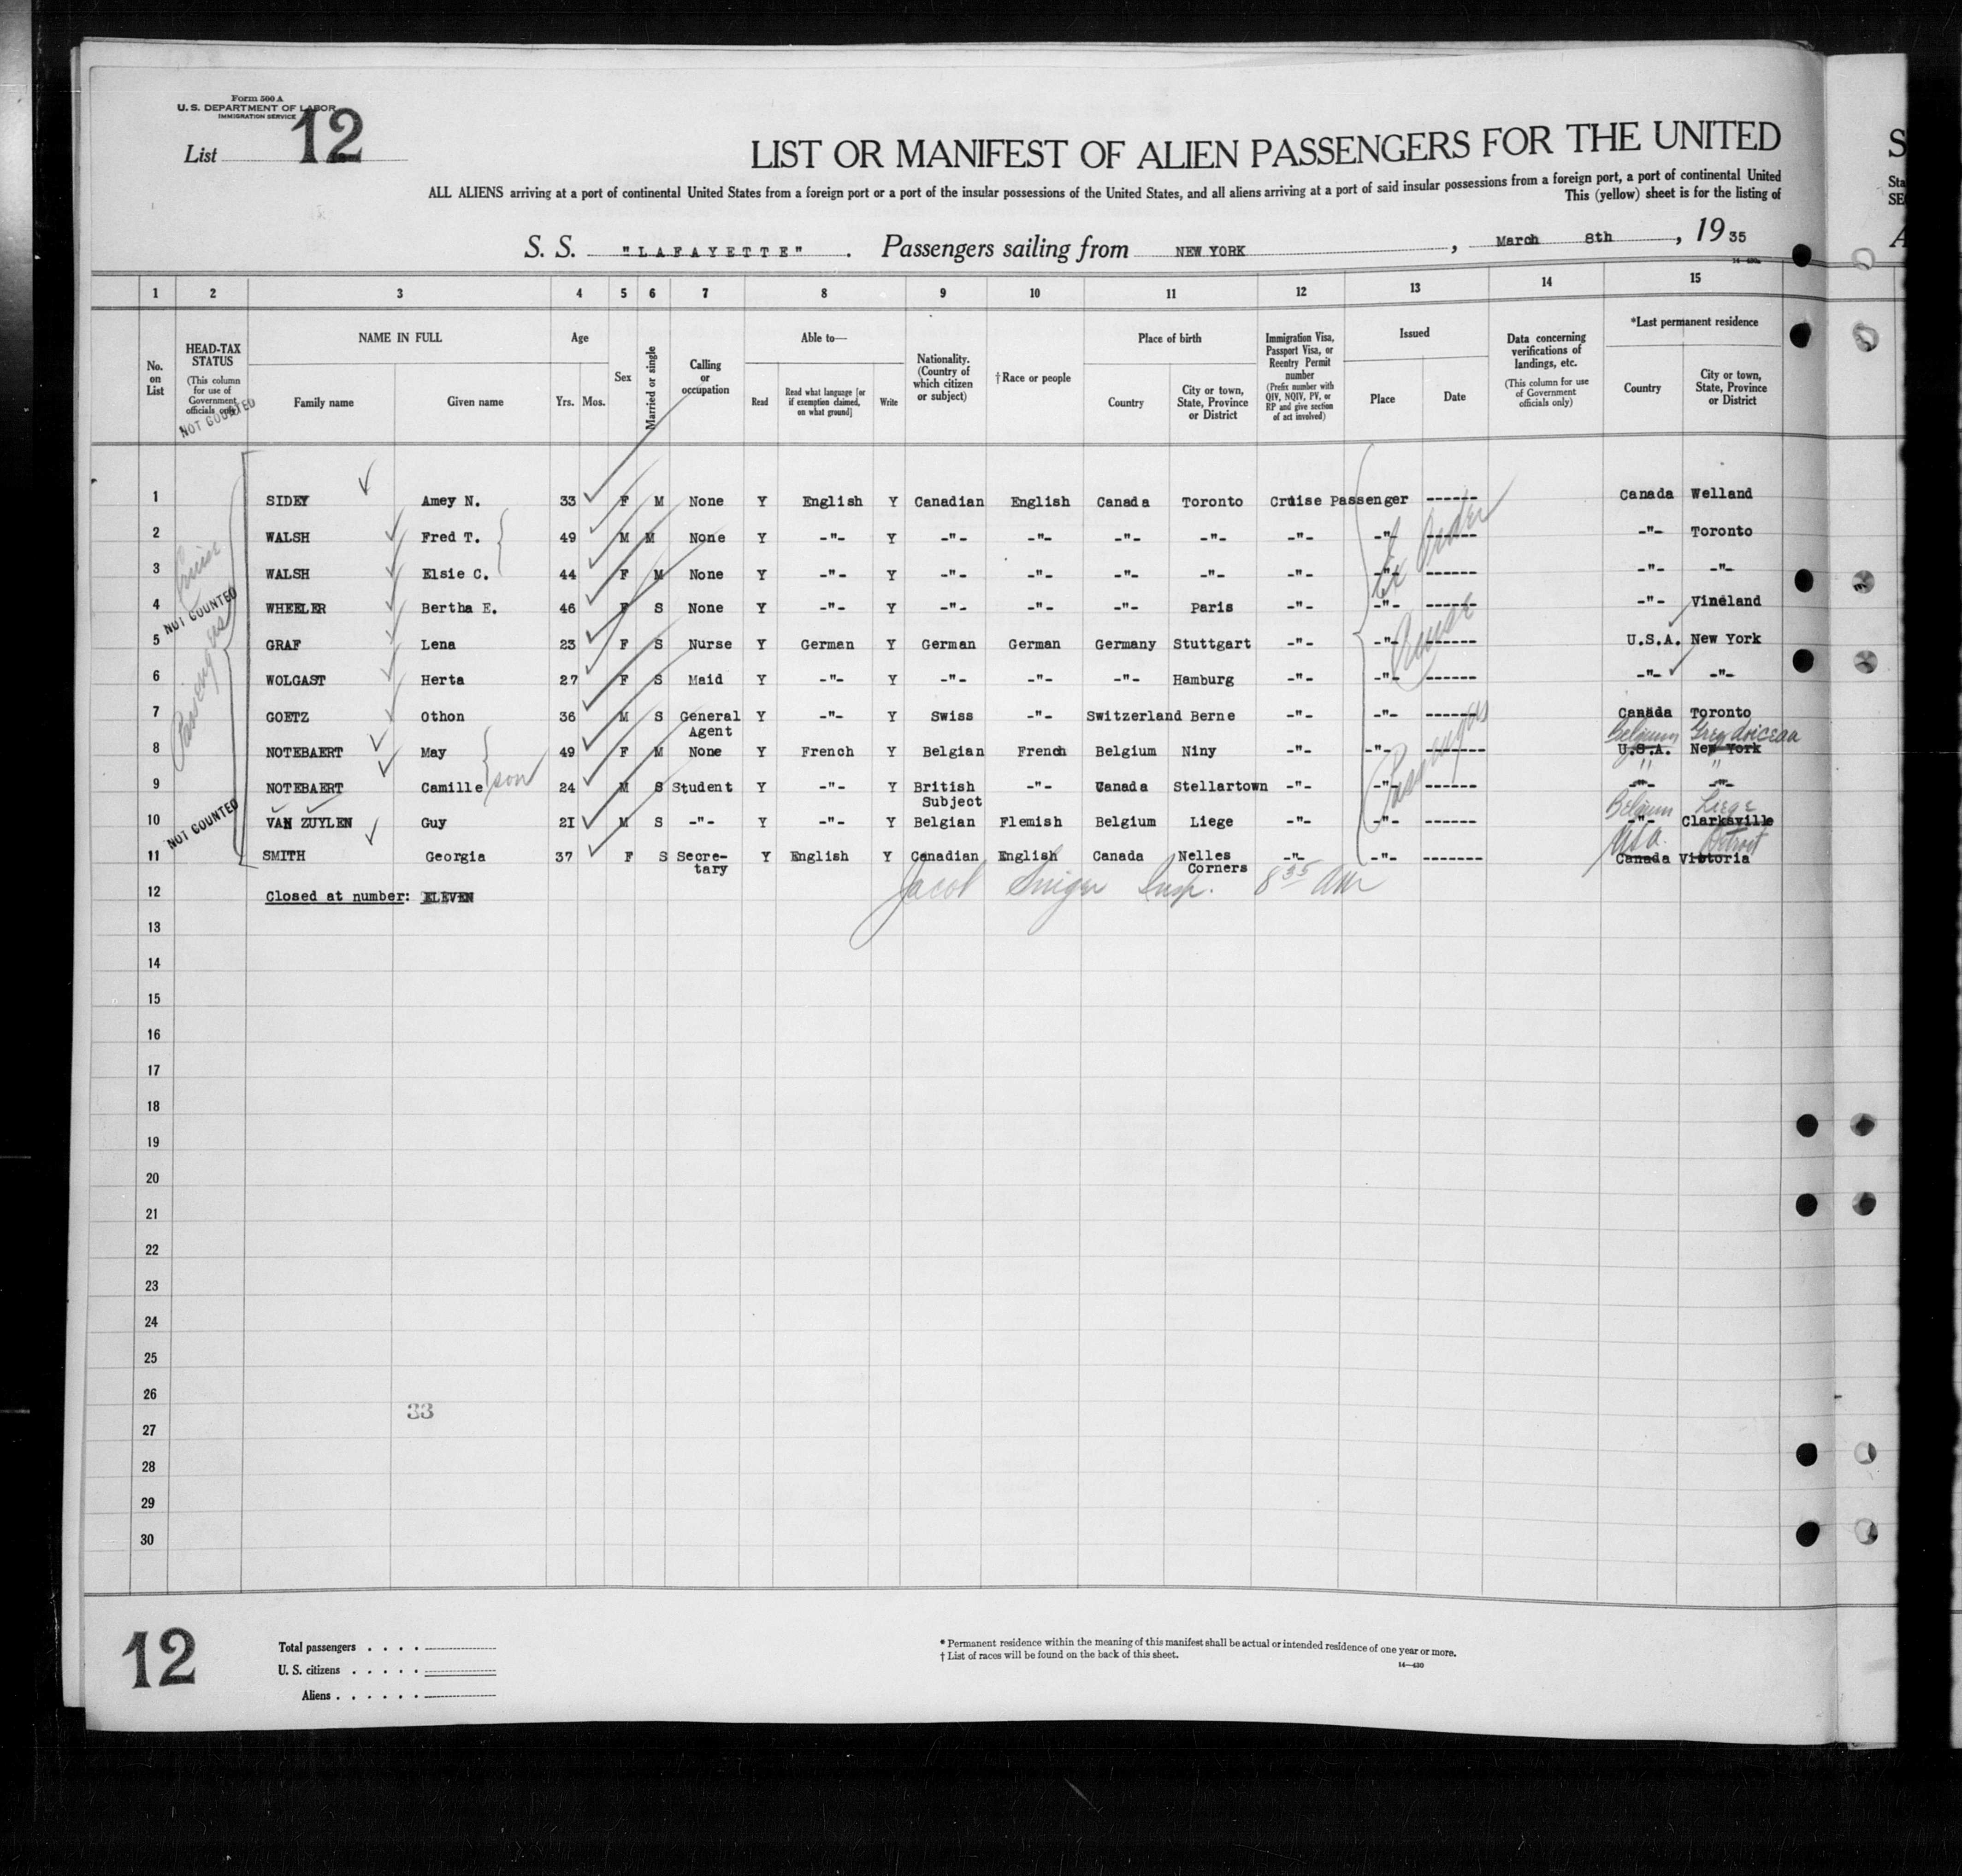 Form 500 A
U. S. DEPARTMENT OF LABOR
IMMIGRATION SERVICE
List 12
LIST OR MANIFEST OF ALIEN PASSENGERS FOR THE UNITED
ALL ALIENS arriving at a port of continental United States from a foreign port or a port of the insular possessions of the United States, and all aliens arriving at a port of said insular possessions from a foreign port, a port of continental United
This (yellow) sheet is for the listing of
S. S. "LAFAYETTE" . Passengers sailing from NEW YORK , March 8th , 19 35
1 2 3 4 5 6 7 8 9 10 11 12 13 14 15
No. on List
HEAD-TAX STATUS
(This column for use of Government officials only)
NOT COUNTED
NAME IN FULL
Family name Given name
Age
Yrs. Mos.
Sex
Married or single
Calling or occupation
Able to—
Read
Read what language [or if exemption claimed, on what ground]
Write
Nationality. (Country of which citizen or subject)
†Race or people
Place of birth
Country
City or town, State, Province or District
Immigration Visa, Passport Visa, or Reentry Permit number
(Prefix number with QIV, NQIV, PV, or RP and give section of act involved)
Issued
Place Date
Data concerning verifications of landings, etc.
(This column for use of Government officials only)
*Last permanent residence
Country
City or town, State, Province or District
1 SIDEY Amey N. 33 F M None Y English Y Canadian English Canada Toronto Cruise Passenger ------ Canada Welland
2 WALSH Fred T. 49 M M None Y -"- Y -"- -"- -"- -"- -"- -"- ------ -"- Toronto
3 WALSH Elsie C. 44 F M None Y -"- Y -"- -"- -"- -"- -"- -"- ------ -"- -"-
4 WHEELER Bertha E. 46 F S None Y -"- Y -"- -"- -"- Paris -"- -"- ------ -"- Vineland
5 GRAF Lena 23 F S Nurse Y German Y German German Germany Stuttgart -"- -"- ------ U.S.A. New York
6 WOLGAST Herta 27 F S Maid Y -"- Y -"- -"- -"- Hamburg -"- -"- ------ -"- -"-
7 GOETZ Othon 36 M S General Agent Y -"- Y Swiss -"- Switzerland Berne -"- -"- ------ Canada Toronto
Belgium
8 NOTEBAERT May 49 F M None Y French Y Belgian French Belgium Niny -"- -"- ------ U.S.A. New York
" "
9 NOTEBAERT Camille son 24 M S Student Y -"- Y British Subject -"- Canada Stellartown -"- -"- ------ -"- -"-
Belgium Liege
10 VAN ZUYLEN Guy 21 M S -"- Y -"- Y Belgian Flemish Belgium Liege -"- -"- ------ -"- Clarksville
USA. Detroit
11 SMITH Georgia 37 F S Secre-tary Y English Y Canadian English Canada Nelles Corners -"- -"- ------- Canada Victoria
Cruise Passengers
NOT COUNTED
NOT COUNTED
Ex Order
Cruise
Passengers
12 Closed at number: ELEVEN
Jacob Insp. 8 35 AM
13
14
15
16
17
18
19
20
21
22
23
24
25
26
33
27
28
29
30
12
Total passengers . . . .
U. S. citizens . . . . .
Aliens . . . . . .
* Permanent residence within the meaning of this manifest shall be actual or intended residence of one year or more.
† List of races will be found on the back of this sheet.
14—430